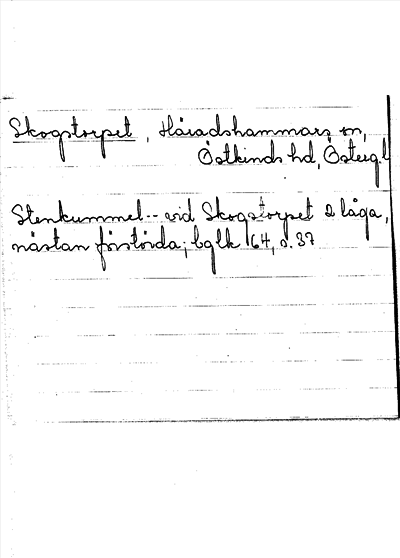 Skogstorpet, Häradshammars sn,
Östkinds hd, Östergl
Stenkummel -- vid Skogstorpet 2 låga,
nästan förstörda; bglk 164, s. 37